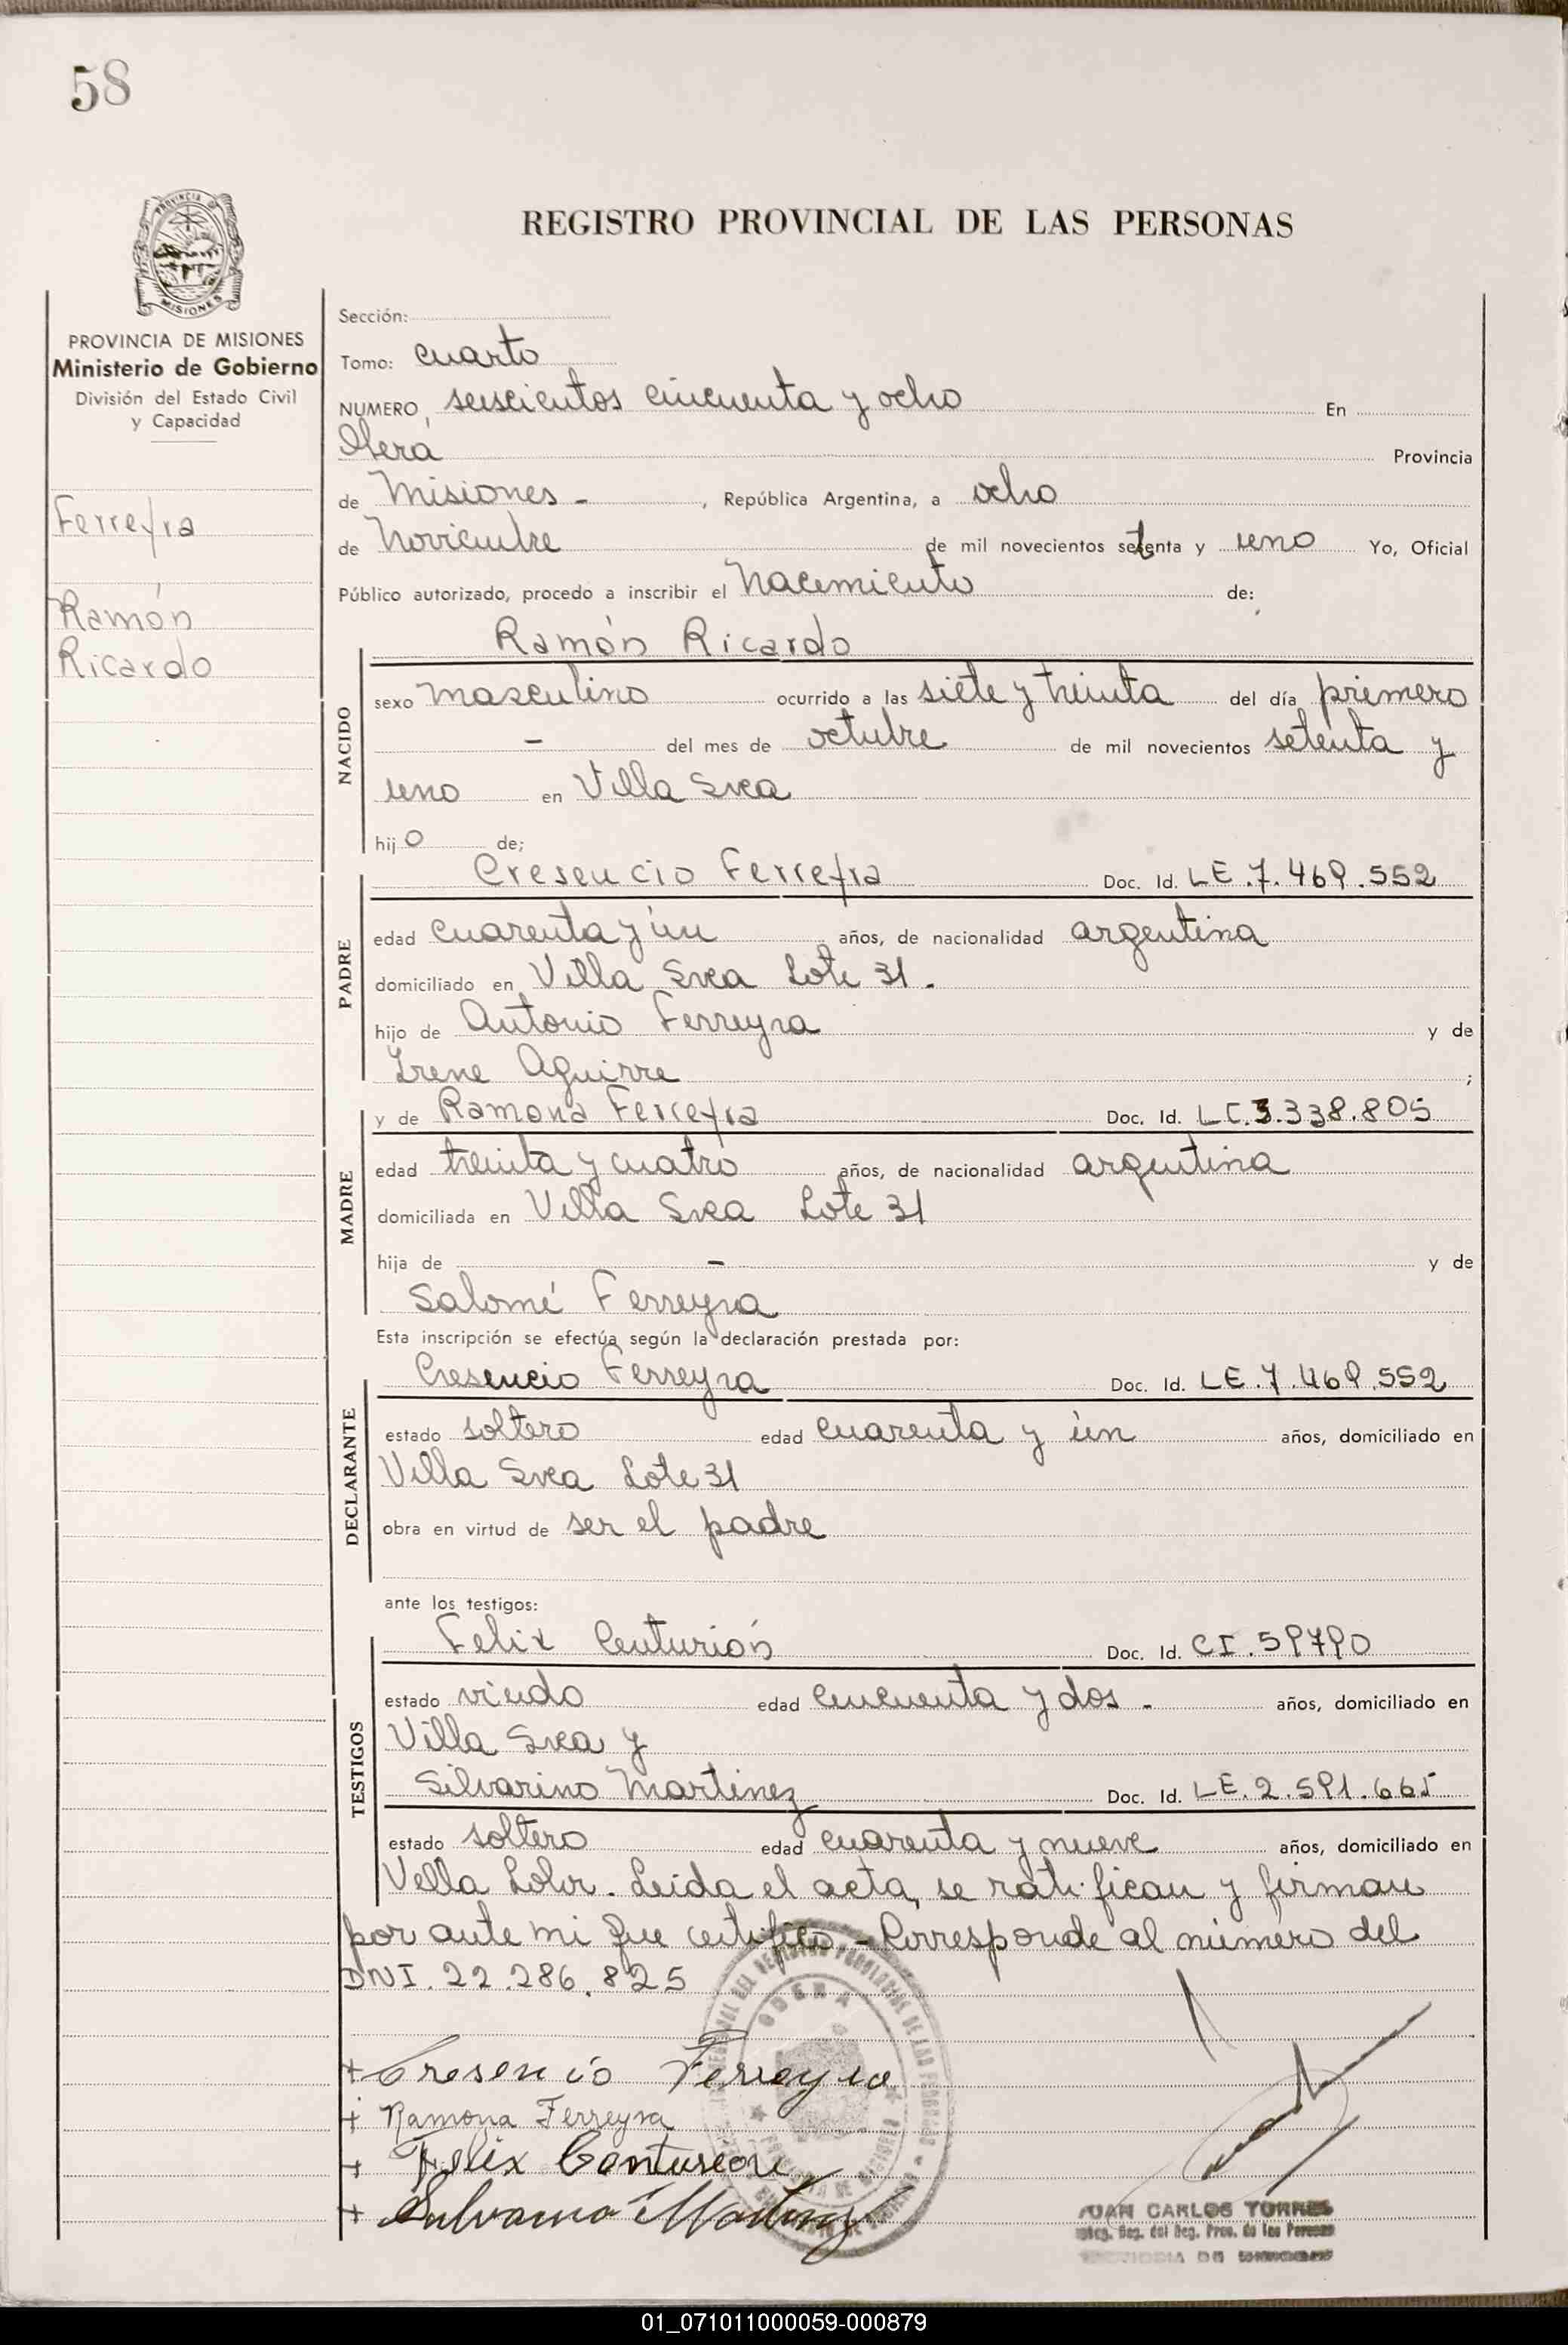 58
REGISTRO PROVINCIAL DE LAS PERSONAS
PROVINCIA DE MISIONES
Ministerio de Gobierno
División del Estado Civil
y Capacidad
Ferreyra
Ramón
Ricardo
Sección:
Tomo: cuarto
NUMERO, seiscientos cincuenta y ocho En
Oberá Provincia
de Misiones - , República Argentina, a ocho
de Noviembre de mil novecientos setenta y uno Yo, Oficial
Público autorizado, procedo a inscribir el Nacimiento de:
Ramón Ricardo
NACIDO
sexo masculino ocurrido a las siete y treinta del día primero
- del mes de octubre de mil novecientos setenta y
uno en Villa Svea
hijo de;
PADRE
Cresencio Ferreyra Doc. Id. LE.7.469.552
edad cuarenta y ún años, de nacionalidad argentina
domiciliado en Villa Svea Lote 31.
hijo de Antonio Ferreyra y de
Irene Aguirre ;
MADRE
y de Ramona Ferreyra Doc. Id. LC.3.338.805
edad treinta y cuatro años, de nacionalidad argentina
domiciliada en Villa Svea Lote 31
hija de - y de
Salomé Ferreyra
Esta inscripción se efectúa según la declaración prestada por:
DECLARANTE
Cresencio Ferreyra Doc. Id. LE.7.469.552
estado soltero edad cuarenta y ún años, domiciliado en
Villa Svea Lote 31
obra en virtud de ser el padre
ante los testigos:
TESTIGOS
Felix Centurión Doc. Id. CI.59790
estado viudo edad cincuenta y dos - años, domiciliado en
Villa Svea y
Silvarino Martinez Doc. Id. LE.2.591.665
estado soltero edad cuarenta y nueve años, domiciliado en
Villa . Leida el acta, se ratifican y firman
por ante mi que certifico. - Corresponde al número del
DNI. 22.286.825
OBERA
+ Cresencio Ferreyra
+ Ramona Ferreyra
+ Felix Centurion
+ Martinez
JUAN CARLOS TORRES
del Reg. Prov. de las Personas
01_071011000059-000879